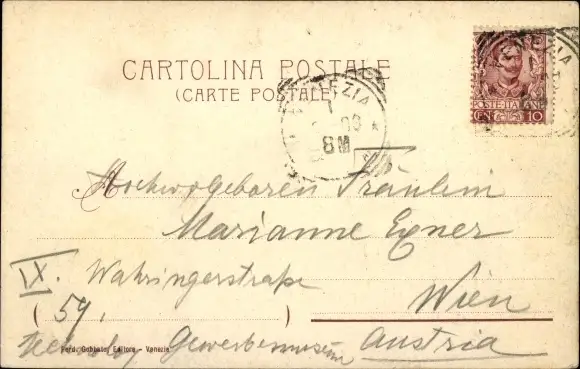 CARTOLINA POSTALE
(CARTE POSTALE)
VENEZIA
8M
POSTE ITALIANE
CEN 10
Hochwolgeboren Fräulein
Marianne Exner
IX. Wahringerstraße
59. Wien
Gewerbemuseum Austria
Ferd. Gobbato, Editore - Venezia